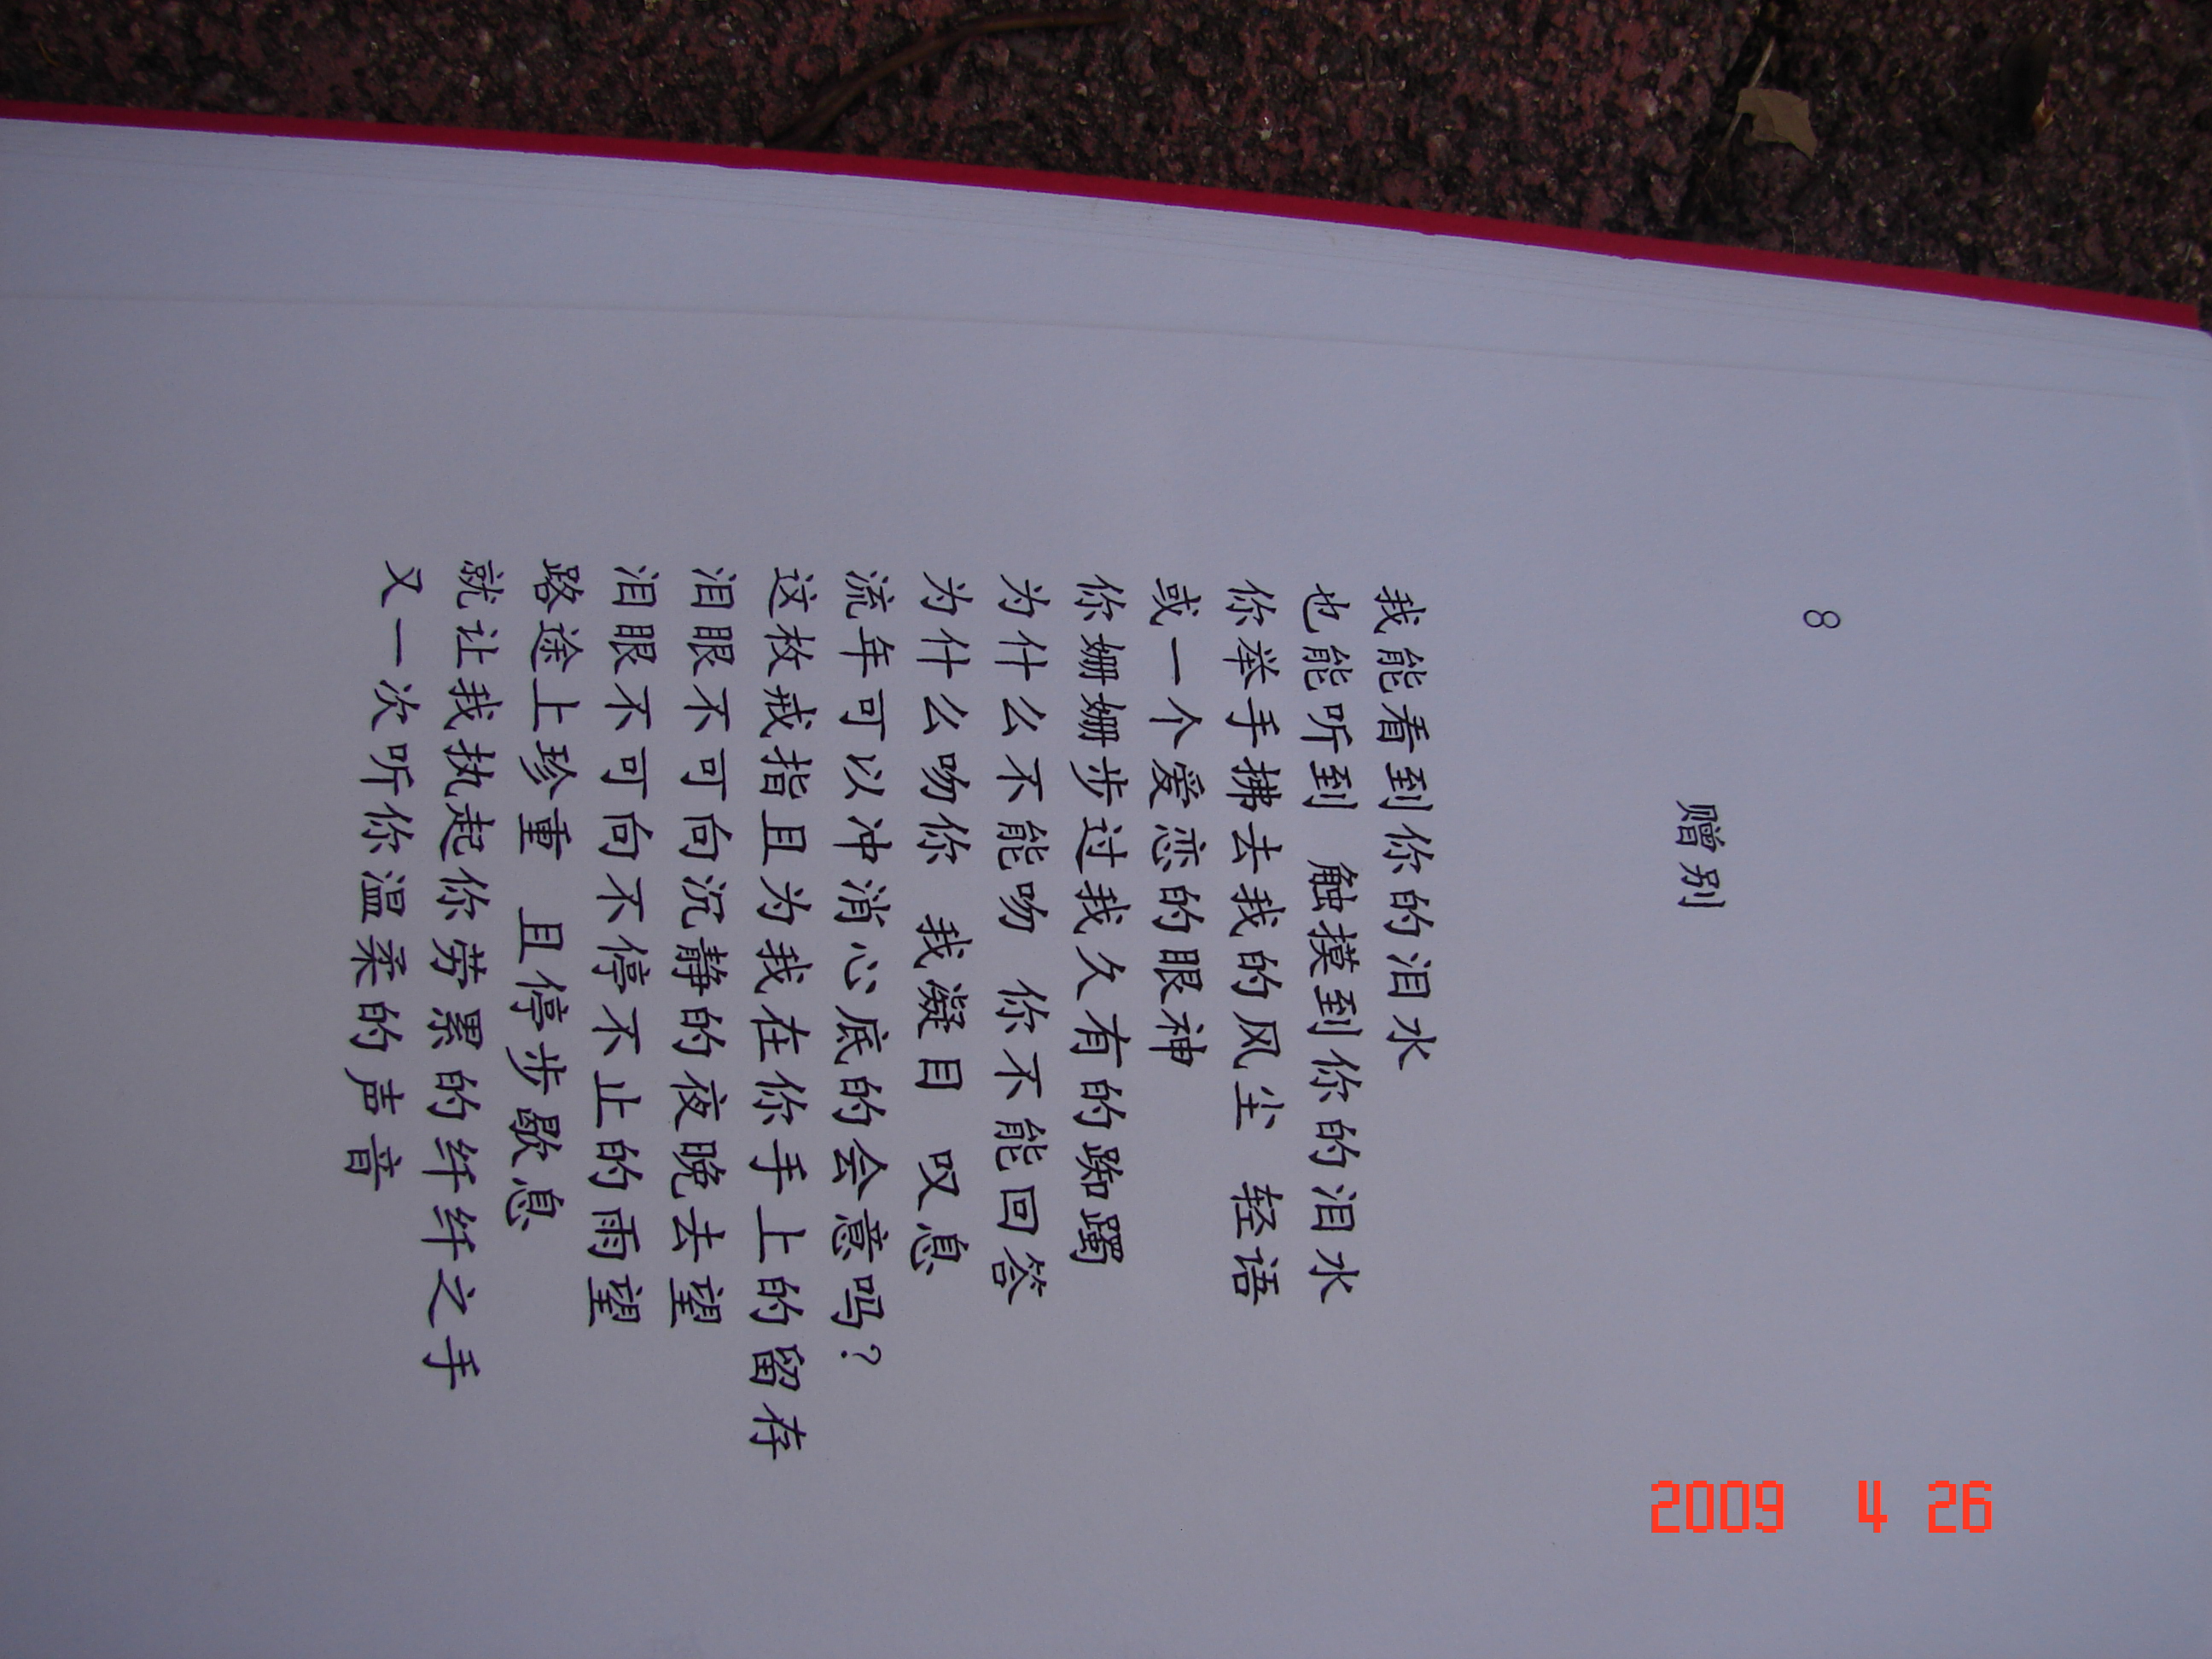 8
赠别
我能看到你的泪水
也能听到 触摸到你的泪水
你举手拂去我的风尘 轻语
或一个爱恋的眼神
你姗姗步过我久有的踟躅
为什么不能吻 你不能回答
为什么吻你 我凝目 叹息
流年可以冲消心底的会意吗？
这枚戒指且为我在你手上的留存
泪眼不可向沉静的夜晚去望
泪眼不可向不停不止的雨望
路途上珍重 且停步歇息
就让我执起你劳累的纤纤之手
又一次听你温柔的声音
2009 4 26